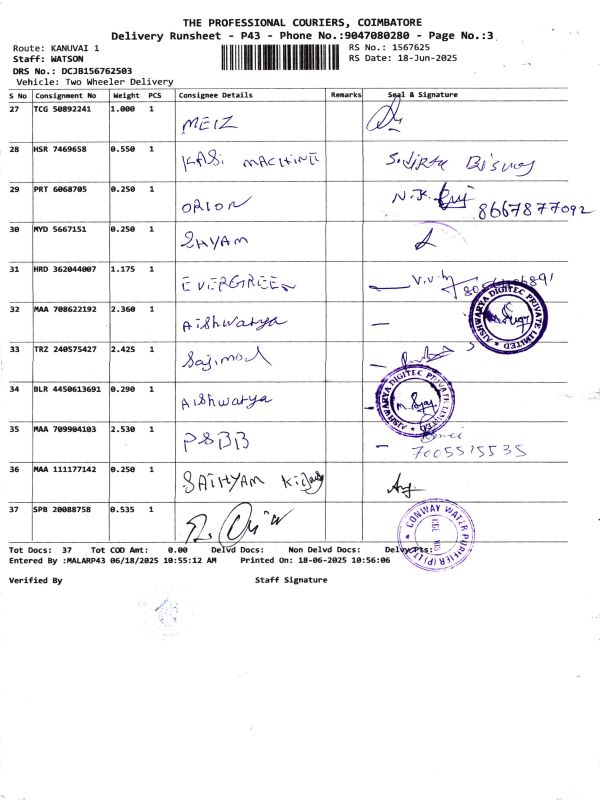 THE PROFESSIONAL COURIERS, COIMBATORE
Delivery Runsheet - P43 - Phone No.:9047080280 - Page No.:3
Route: KANUVAI 1
RS No.: 1567625
Staff: WATSON
RS Date: 18-Jun-2025
DRS No.: DCJB156762503
Vehicle: Two Wheeler Delivery
S No Consignment No Weight PCS Consignee Details Remarks Seal & Signature
27 TCG 50892241 1.000 1 MEIZ
28 HSR 7469658 0.550 1 KASi MACHINE
29 PRT 6068705 0.250 1 ORION 8667877092
30 MYD 5667151 0.250 1 SHYAM
31 HRD 362044007 1.175 1 EVERGREEN
32 MAA 708622192 2.360 1 Aishwarya
AISHWARYA DIGITEC PRIVATE LIMITED
33 TRZ 240575427 2.425 1
34 BLR 4450613691 0.290 1 Aishwarya
AISHWARYA DIGITEC PRIVATE LIMITED
35 MAA 709904103 2.530 1 PSBB
7005515535
36 MAA 111177142 0.250 1
37 SPB 20088758 0.535 1
CONWAY WATER PURIFIER (P) LTD
CBE
Tot Docs: 37 Tot COD Amt: 0.00 Delvd Docs: Non Delvd Docs: Delvy Pts:
Entered By :MALARP43 06/18/2025 10:55:12 AM Printed On: 18-06-2025 10:56:06
Verified By Staff Signature